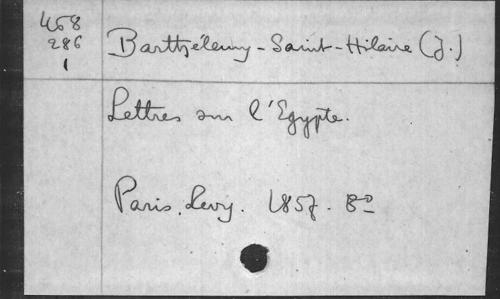 468
286
1
Barthélemy-Saint-Hilaire (J.)
Lettres sur l'Egypte.
Paris, Levy. 1857. 8º